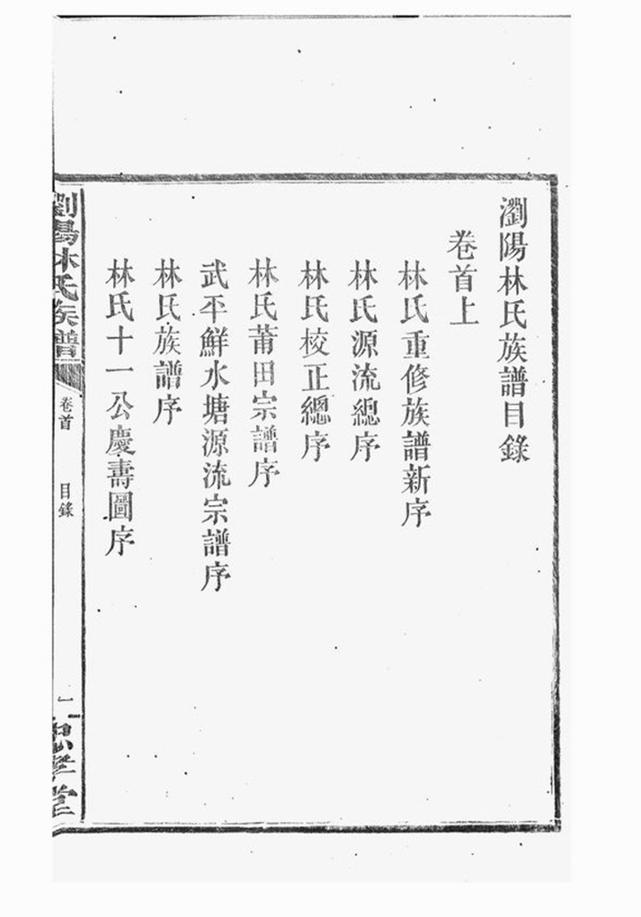 瀏陽林氏族譜目錄
卷首上
林氏重修族譜新序
林氏源流總序
林氏校正總序
林氏莆田宗譜序
武平鮮水塘源流宗譜序
林氏族譜序
林氏十一公慶壽圖序
瀏陽林氏族譜
卷首
目錄
一
忠孝堂